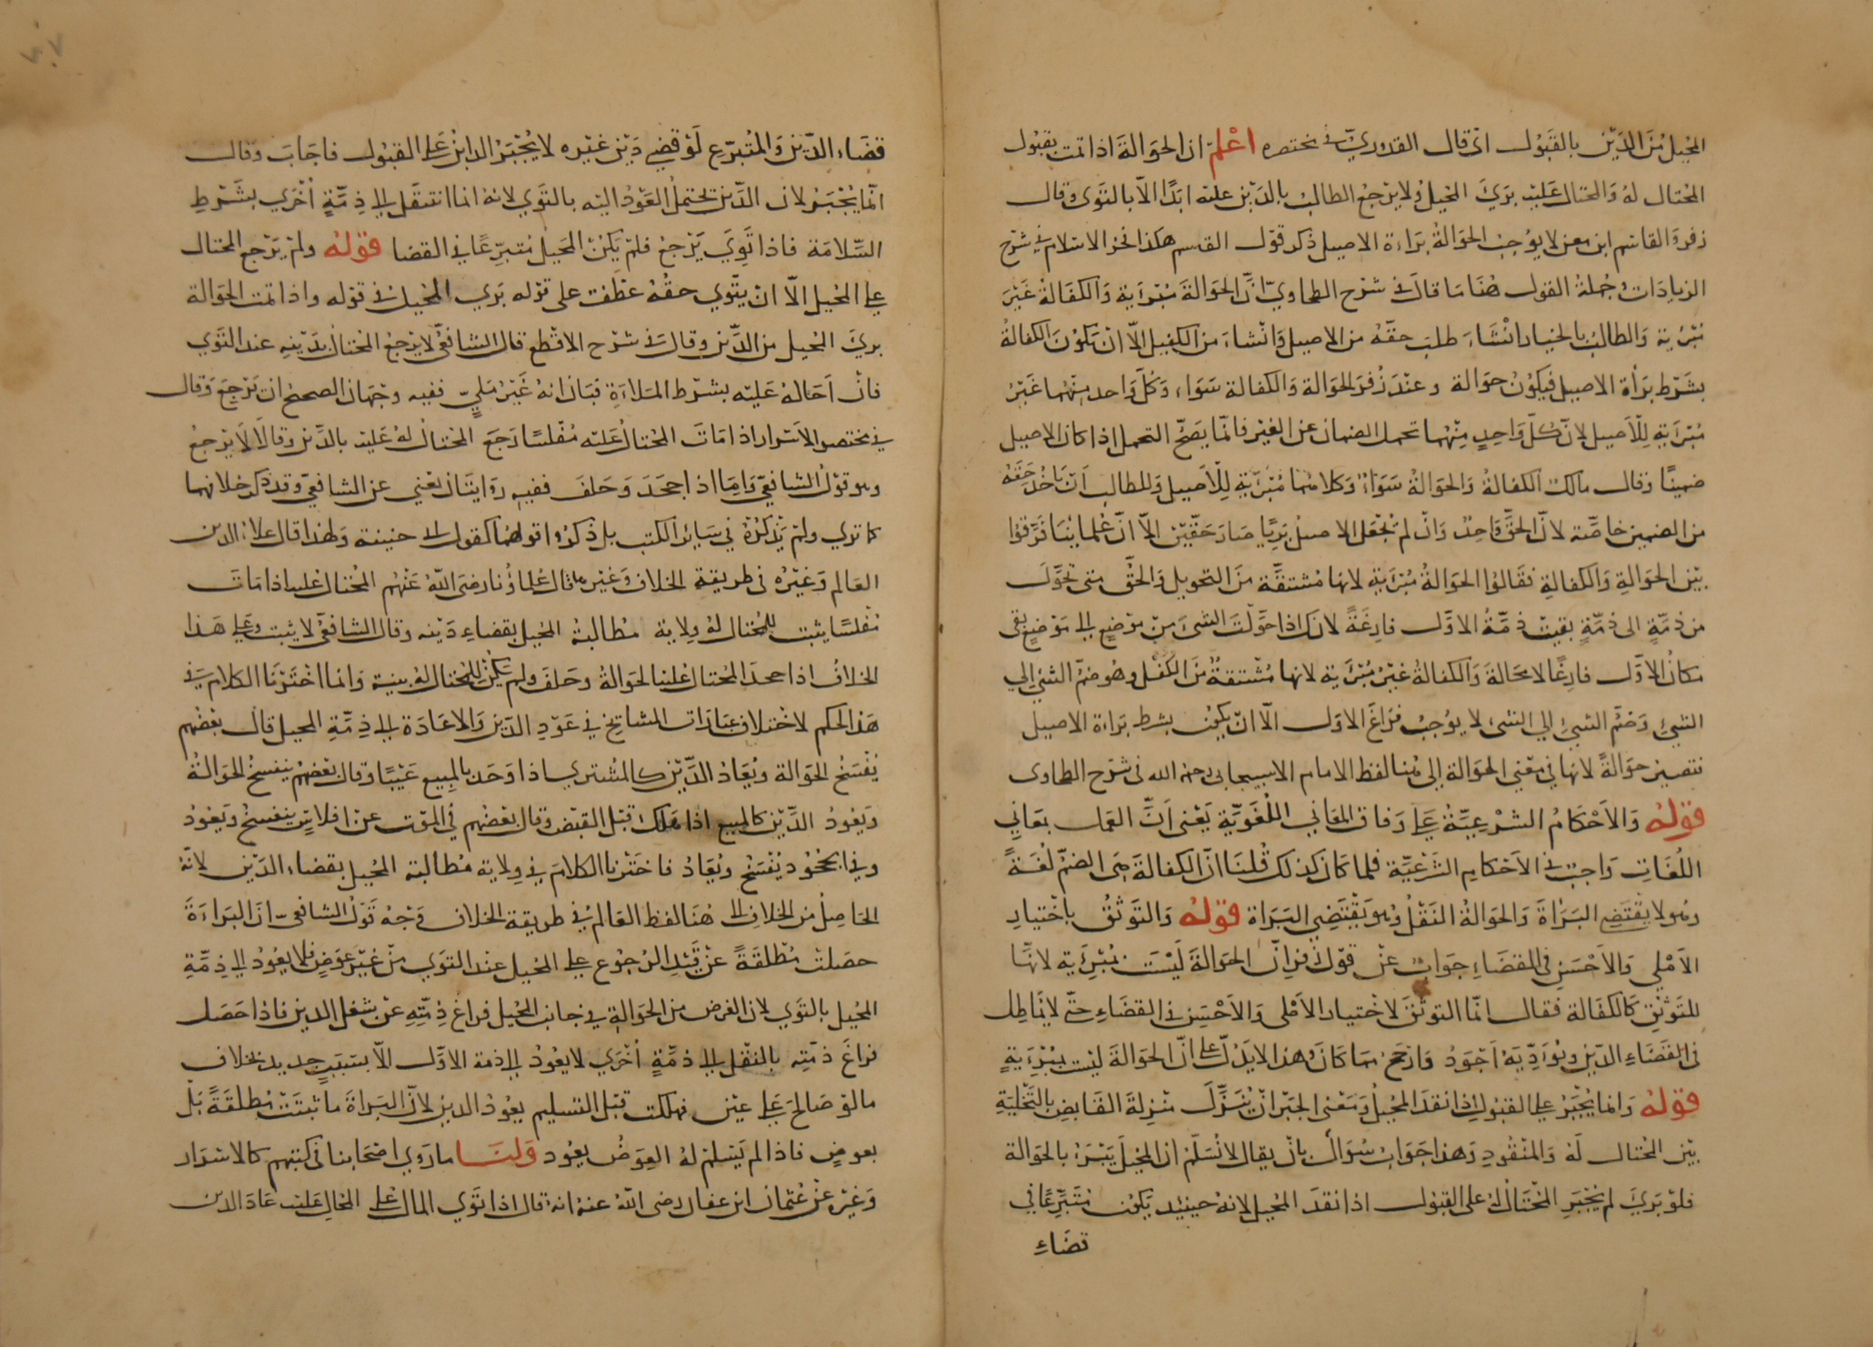 المحيل من الدين بالقبول اى قال القدوري في مختصره اعلم ان الحوالة اذا تمت بقبول
المحتال له والمحتال عليه برئ المحيل ولا يرجع الطالب بالدين عليه ابدا الا بالتوى وقال
زفر والقاسم ابن معن لا يوجب الحوالة براءة الاصيل ذكر قول القسم هكذا فخر الاسلام في شرح
الزيادات وجملة القول هنا ما قال في شرح الطحاوي ان الحوالة مبرئة والكفالة غير
مبرئة والطالب بالخيار ان شاء طلب حقه من الاصيل وان شاء من الكفيل الا ان تكون الكفالة
بشرط براة الاصيل فيكون حوالة وعند زفر الحوالة والكفالة سواء وكل واحد منهما غير
مبرئة للاصيل لان كل واحد منهما تحمل الضمان عن الغير فانما يصح التحمل اذا كان الاصيل
ضمينا وقال مالك الكفالة والحوالة سواء وكلاهما مبرئة للاصيل وللطالب ان ياخذ حقه
من الضمين خاصة لان الحق واحد وان لم نجعل الاصيل بريا صار حقين الا ان علماينا فرقوا
بين الحوالة والكفالة فقالوا الحوالة مبرئة لانها مشتقة من التحويل والحق متى تحول
من ذمة الى ذمة بقيت ذمة الاول فارغة لانك اذا حولت الشئ من موضع الى موضع بقى
مكان الاول فارغا لا محالة والكفالة غير مبرئة لانها مشتقة من الكفل وهو ضم الشئ الي
الشئ وضم الشئ الي الشئ لا يوجب فراغ الاول الا ان يكون بشرط براة الاصيل
فتصير حوالة لانها في معنى الحوالة الى هنا لفظ الامام الاسبيجابى رحمه الله فى شرح الطحاوى
قوله والاحكام الشرعية على وفاق المعاني اللغوية يعنى ان العمل بمعاني
اللغات واجب في الاحكام الشرعية فلما كان كذلك قلنا ان الكفالة هى الضم لغة
وهو لا يقتضى البراة والحوالة النقل وهو يقتضي البراة قوله والتوثق باختيار
الاملى والاحسن في القضاء جواب عن قول زفر ان الحوالة ليست مبرئة لانها
للتوثق كالكفالة فقال انما التوثق لاختيار الاملى والاحسن في القضاء حتى لا يماطل
فى القضاء الدين ويؤديه اجود وارجح مما كان وهذا لا يدل على ان الحوالة ليست بمبرئة
قوله وانما يجبر على القبول اذا نقد المحيل ومعنى الجبر ان ينزل منزلة القابض بالتخلية
بين المحتال له والمنقود وهذا جواب سؤال بان يقال لا نسلم ان المحيل يبرئ بالحوالة
فلو برئ لم يجبر المحتال له على القبول اذا نقد المحيل لانه حينئذ يكون متبرعا في
قضاء
قضاء الدين والمتبرع لو قضى دين غيره لا يجبر الداين على القبول فاجاب وقال
انما يجبر لان الدين يحتمل العود اليه بالتوي لانه انما انتقل الى ذمة اخرى بشرط
السلامة فاذا توي يرجع فلم يكن المحيل متبرعا في القضا قوله ولم يرجع المحتال
على المحيل الا ان يتوي حقه عطف على قوله بري المحيل في قوله واذا تمت الحوالة
برئ المحيل من الدين وقال في شرح الاقطع قال الشافعي لا يرجع المحتال بدينه عند التوي
فان احاله عليه بشرط الملاءة فبان انه غير ملي ففيه وجهان الصحيح ان يرجع وقال
في مختصر الاسرار اذا مات المحتال عليه مفلسا رجع المحتال له عليه بالدين وقالا لا يرجع
وهو قول الشافعي واما اذا جحد وحلف ففيه روايتان يعني عن الشافعي وقد ذكر خلافهما
كما تري ولم يذكره في سائر الكتب بل ذكروا قولهما كقول ابى حنيفة ولهذا قال علاء الدين
العالم وغيره فى طريقة الخلاف وغير قال علماؤنا رضى الله عنهم المحتال عليه اذا مات
مفلسا يثبت للمحتال له ولاية مطالبة المحيل بقضاء دينه وقال الشافعي لا يثبت وعلى هذا
الخلاف اذا جحد المحتال عليه الحوالة وحلف ولم يكن للمحتال له بينة وانما اخترنا الكلام في
هذا الحكم لاختلاف عبارات المشايخ في عود الدين والاعادة الى ذمة المحيل قال بعضهم
يفسخ الحوالة ويعاد الدين كالمشتري اذا وجد بالمبيع عيبا وقال بعضهم ينفسخ الحوالة
ويعود الدين كالمبيع اذا هلك قبل القبض وقال بعضهم في الموت عن افلاس ينفسخ ويعود
وفي الجحود يفسخ ويعاد فاخترنا الكلام في ولاية مطالبة المحيل بقضاء الدين لانه
الحاصل من الخلاف الى هنا لفظ العالم في طريقة الخلاف وجه قول الشافعي ان البراءة
حصلت مطلقة عن قيد الرجوع على المحيل عند التوي من غير عوض فلا يعود الى ذمة
المحيل بالتوي لان الغرض من الحوالة في جانب المحيل فراغ ذمته عن شغل الدين فاذا حصل
فراغ ذمته بالنقل الى ذمة اخري لا يعود الى ذمة الاول الا بسبب جديد بخلاف
ما لو صالح على عين فهلكت قبل التسليم يعود الدين لان البراة ما ثبتت مطلقة بل
بعوض فاذا لم يسلم له العوض يعود ولنا ما روي اصحابنا في كتبهم كالاسرار
وغيره عن عثمان ابن عفان رضى الله عنه انه قال اذا توي المال على المحال عليه عاد الدين